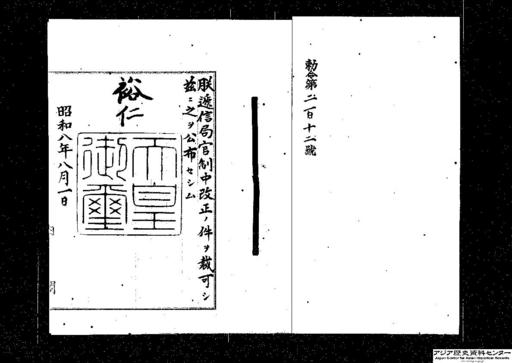 勅令第二百十二號
朕遞信局官制中改正ノ件ヲ裁可シ
茲ニ之ヲ公布セシム
裕仁
天皇
御璽
昭和八年八月一日
アジア歴史資料センター
Japan Center for Asian Historical Records